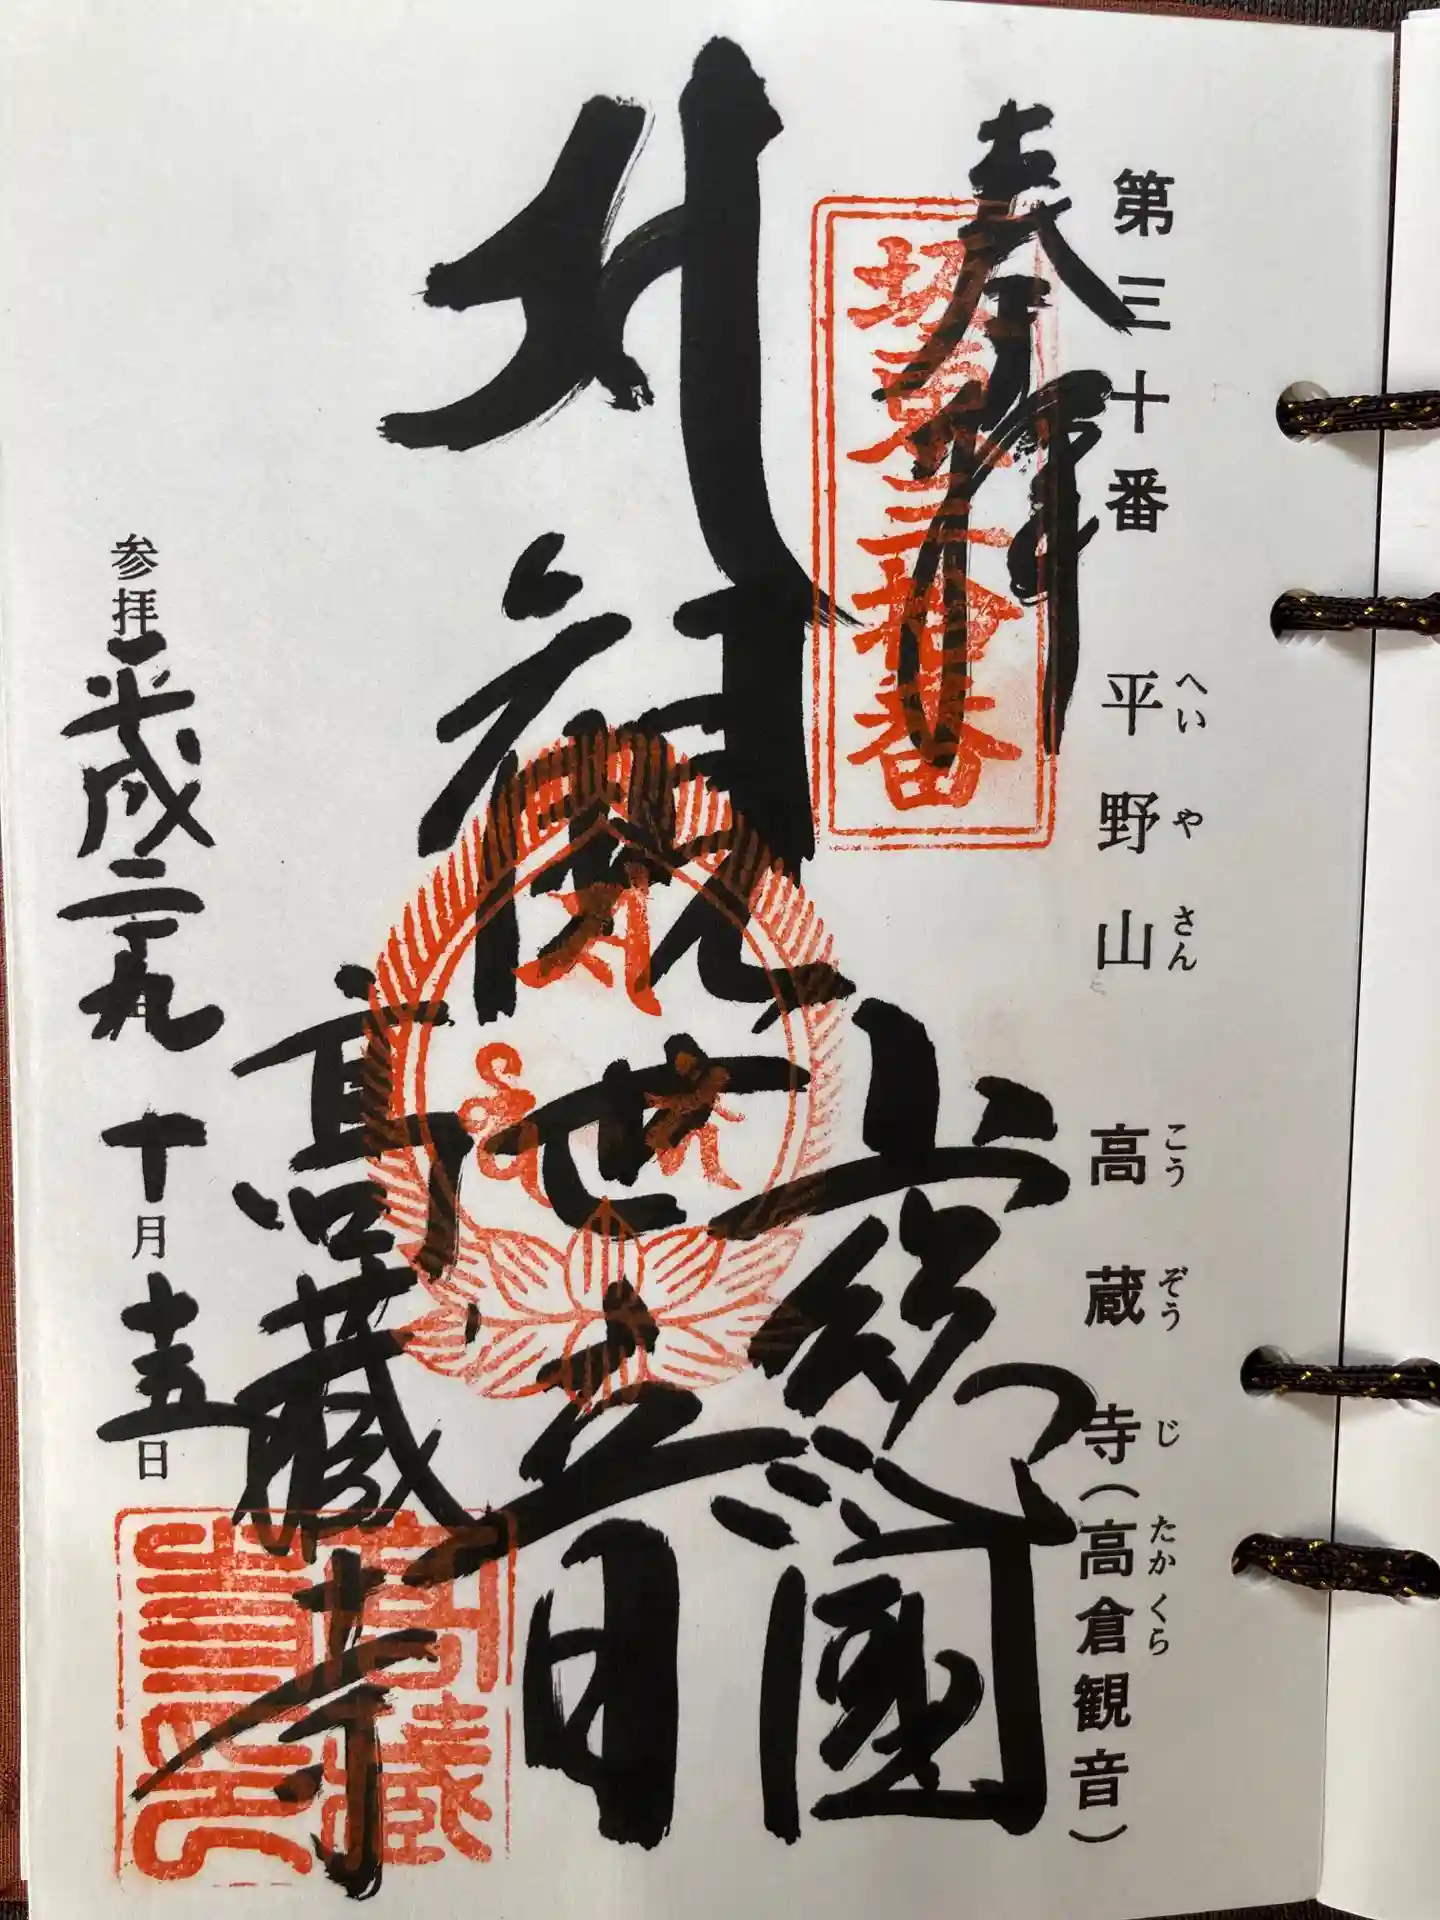 第三十番 平野山 高蔵寺(高倉観音)
へい や さん こう ぞう じ たか くら
奉拝
坂東三拾番
上総國
観世音
高藏寺
参拝 平成二十九年 十月十五日